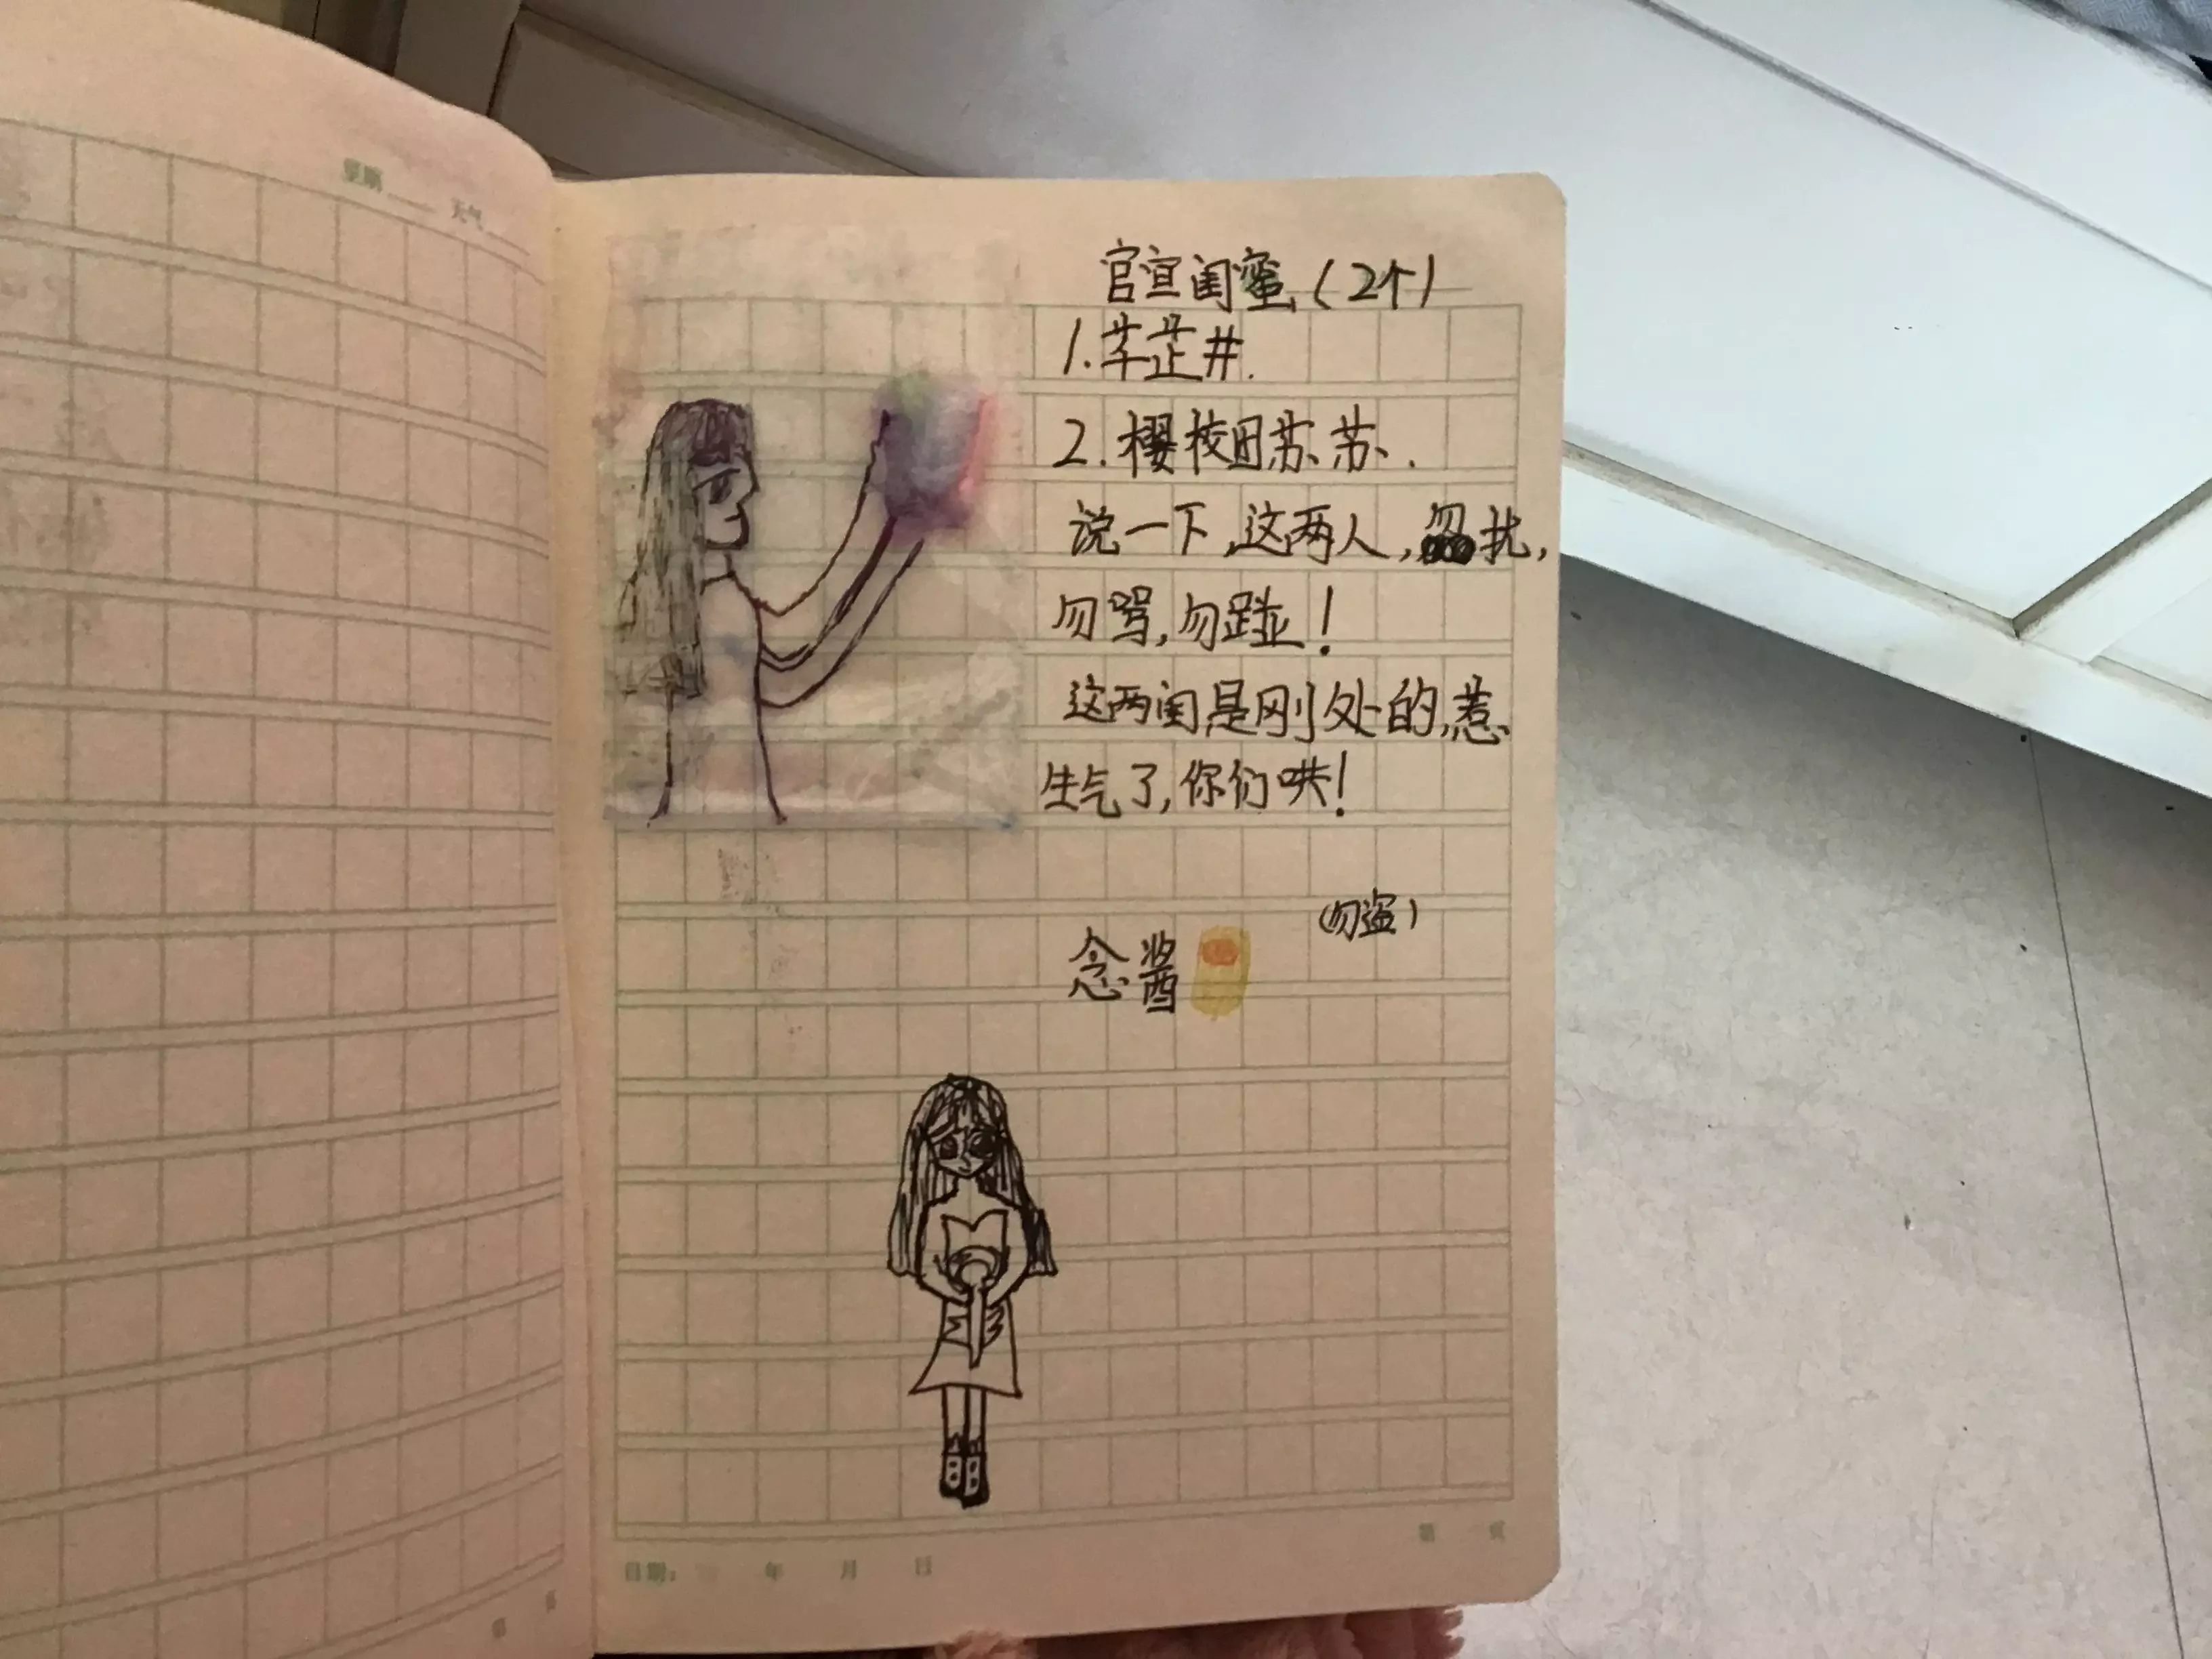 星期 天气
官宣闺蜜(2个)
1.芊芷井.
2.樱校田苏苏.
说一下,这两人,勿扰,
勿骂,勿踫!
这两闺是刚处的,惹
生气了,你们哄!
(勿盗)
念酱
第 页
日期: 年 月 日